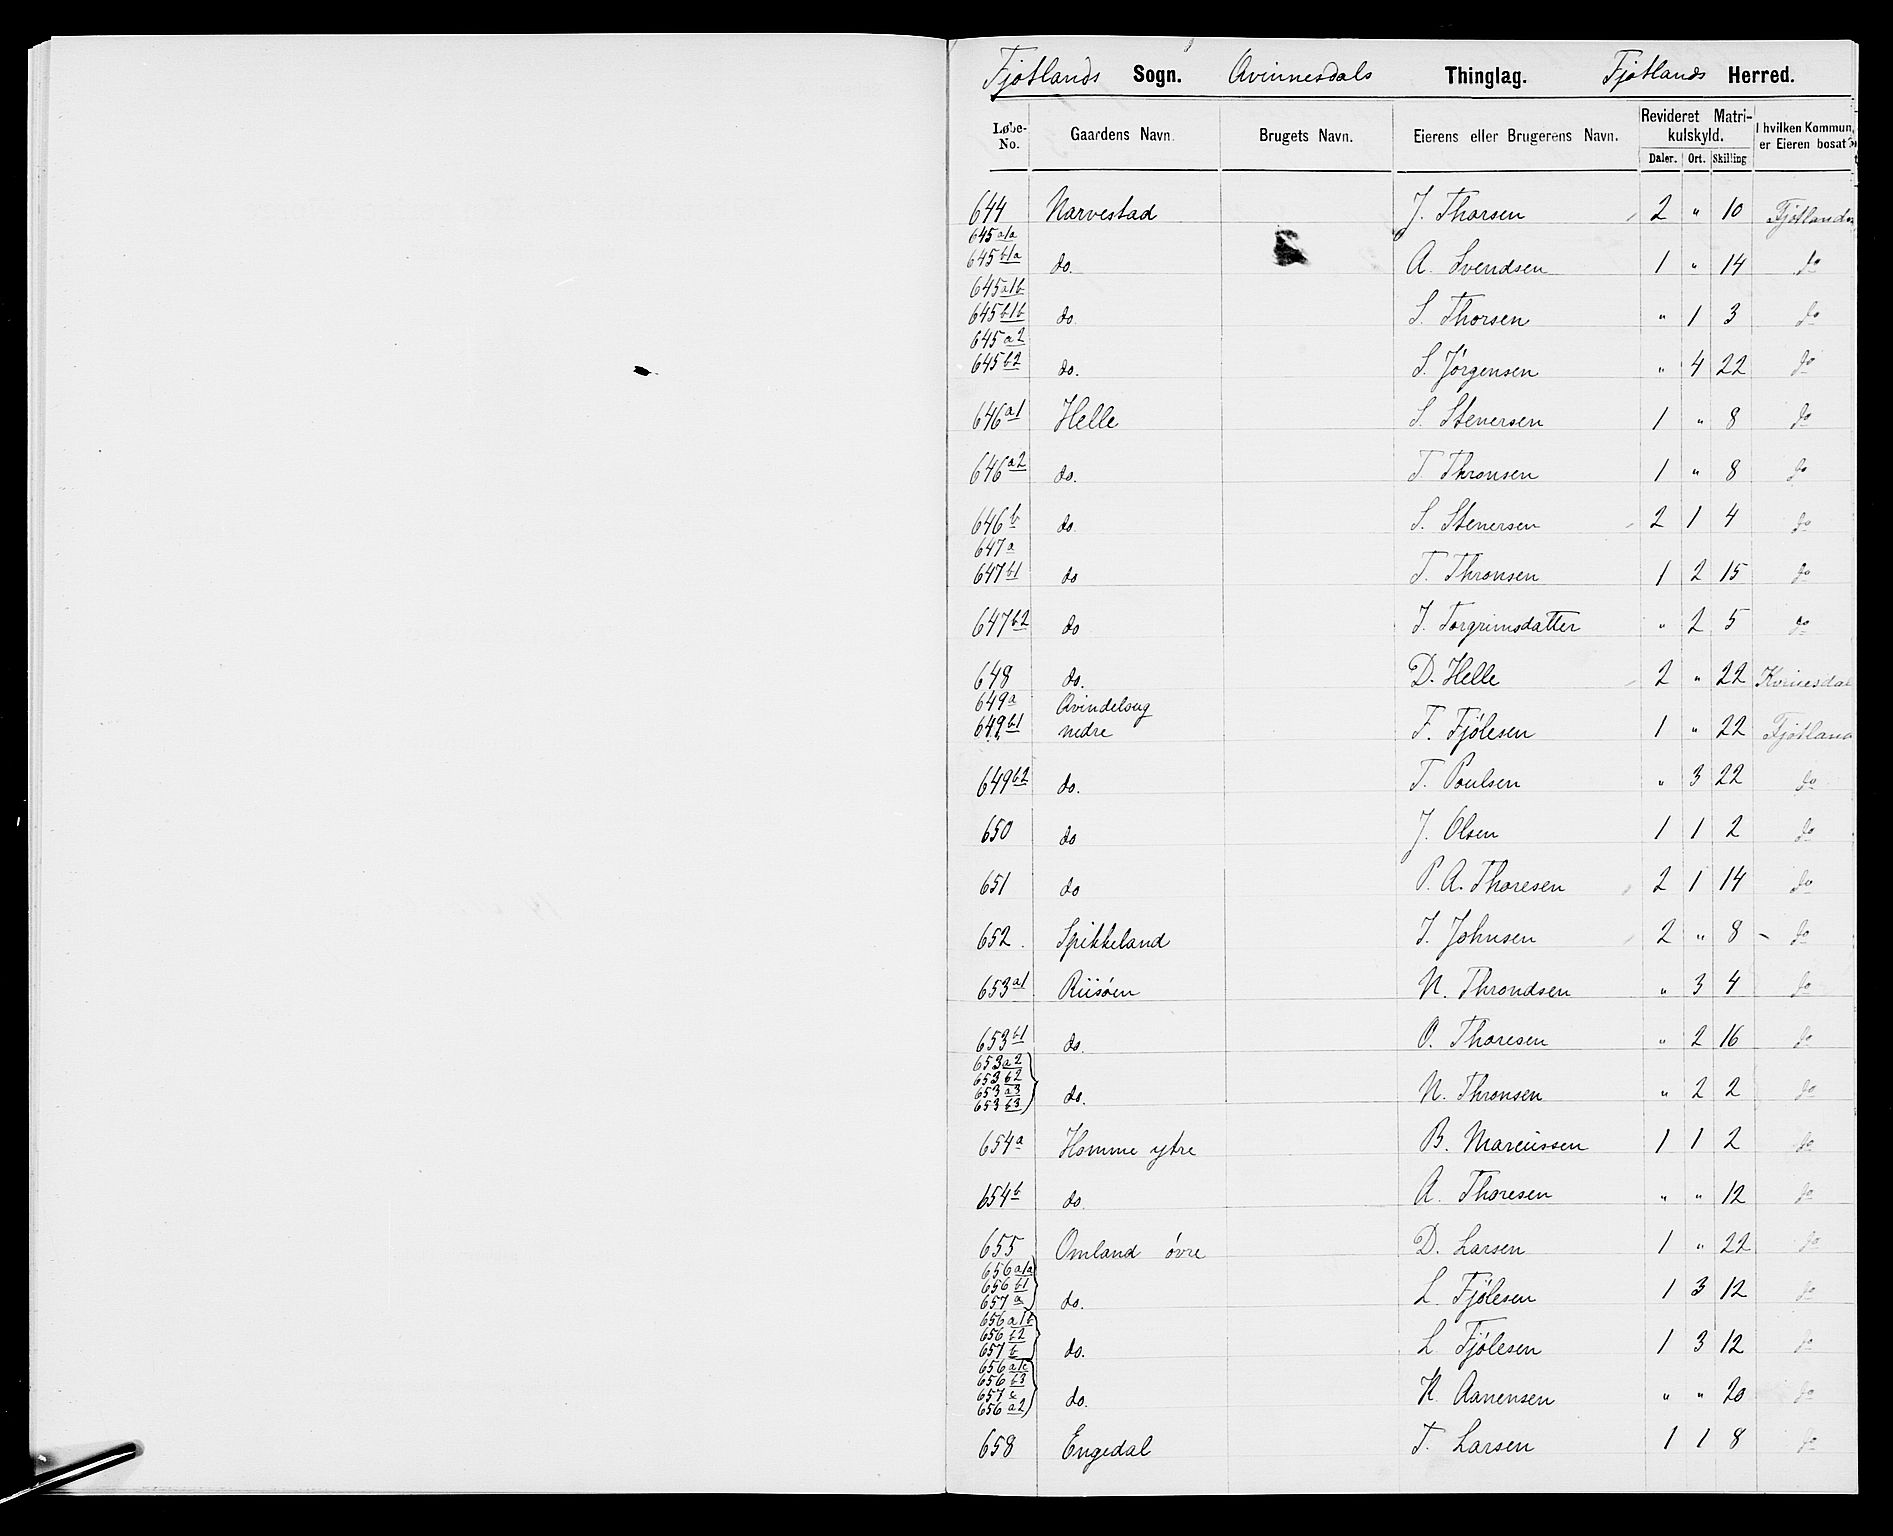 Fjotlands Sogn. Qvinnesdals Thinglag. Fjotlands Herred.
Løbe-No. Gaardens Navn. Brugets Navn. Eierens eller Brugerens Navn. Revideret Matrikulskyld. Daler. Ort. Skilling I hvilken Kommune er Eieren bosat?
644 Narvestad J. Thorsen 2 " 10 Fjotland
645 a1a
645 b1a do. A. Svendsen 1 " 14 do
645 a1b
645 b1b do S. Thorsen " 1 3 do
645 a2
645 b2 do. S. Jørgensen " 4 22 do
646 a1 Helle S. Stenersen 1 " 8 do
646 a2 do. T. Thronsen 1 " 8 do
646 b do. S. Stenersen 2 1 4 do
647 a
647 b1 do T. Thronsen 1 2 15 do
647 b2 do I. Torgrimsdatter " 2 5 do
648 do. D. Helle 2 " 22 Kvinesdal
649 a Qvindelaug
649 b1 nedre F. Fjølesen 1 " 22 Fjotland
649 b2 do. T. Poulsen " 3 22 do
650 do J. Olsen 1 1 2 do
651 do P. A. Thoresen 2 1 14 do
652. Spikkeland I. Johnsen 2 " 8 do
653 a1 Riisøen N. Throndsen " 3 4 do
653 b1 do. O. Thoresen " 2 16 do
653 a2
653 b2
653 a3
653 b3 do. N. Thronsen " 2 2 do
654 a Homme ytre B. Marcussen 1 1 2 do
654 b do. A. Thoresen " " 12 do
655 Omland øvre D. Larsen 1 " 22 do
656 a1a
656 b1
657 a do. L. Fjølesen 1 3 12 do
656 a1b
656 b2
657 b do. L. Fjølesen 1 3 12 do
656 a1c
656 b3
657 c
656 a2 do. K. Aanensen " " 20 do
658 Engedal T. Larsen 1 1 8 do